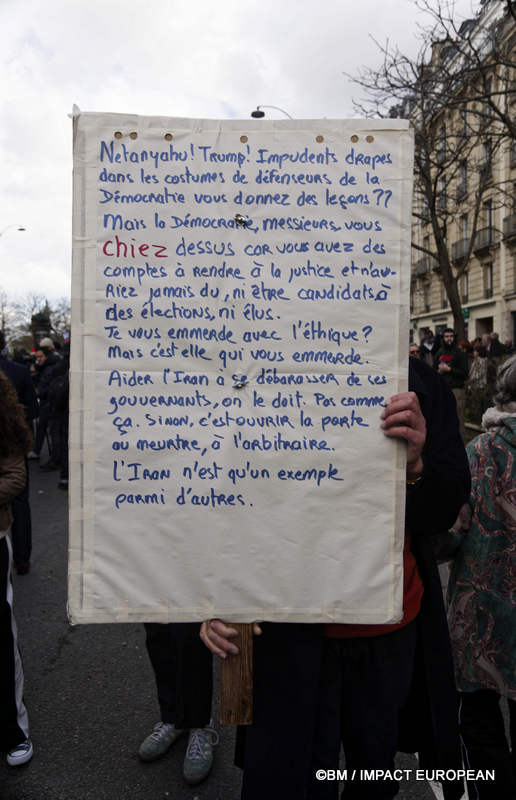 Netanyahu! Trump! Impudents drapes
dans les costumes de défenseurs de la
Démocratie vous donnez des leçons??
Mais la Démocratie, messieurs, vous
chiez dessus car vous avez des
comptes à rendre à la justice et n'au-
riez jamais du, ni être candidats à
des élections, ni élus.
Je vous emmerde avec l'éthique?
Mais c'est elle qui vous emmerde.
Aider l'Iran à se débarasser de ses
gouvernants, on le doit. Pas comme
ça. Sinon, c'est ouvrir la porte
au meurtre, à l'arbitraire.
L'Iran n'est qu'un exemple
parmi d'autres.
©BM / IMPACT EUROPEAN